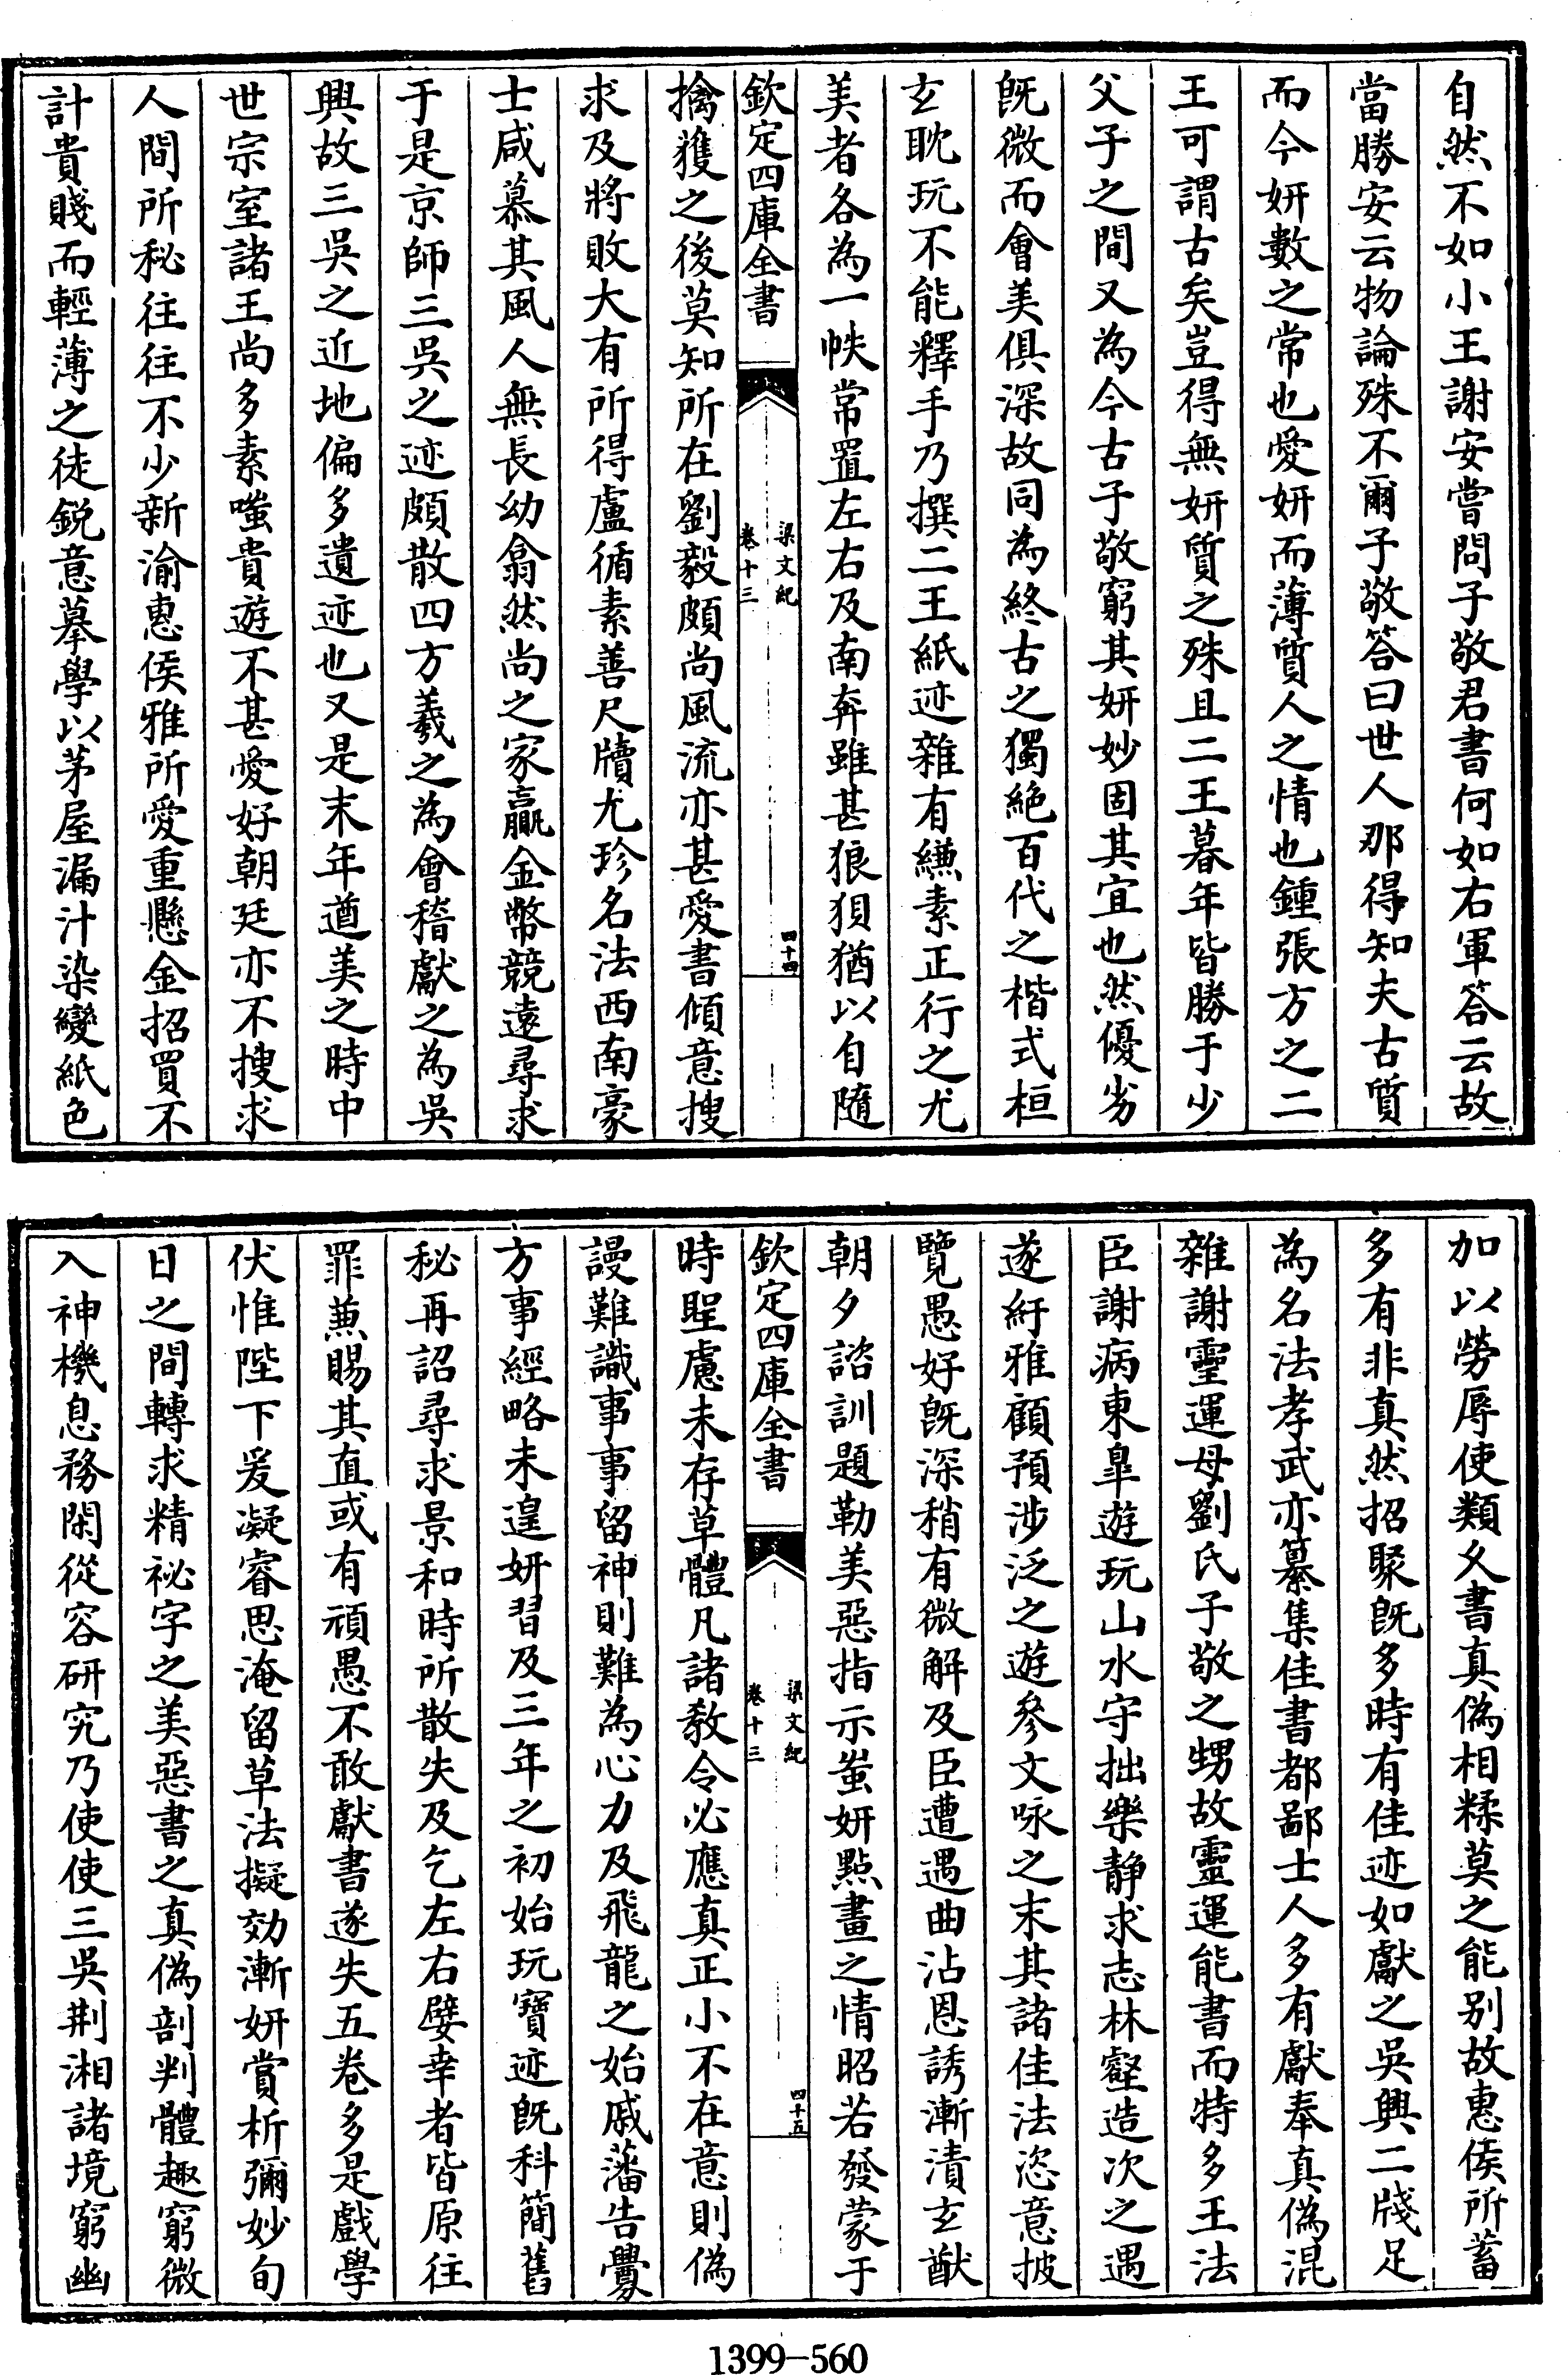 自然不如小王謝安嘗問子敬君書何如右軍答云故
當勝安云物論殊不爾子敬答曰世人那得知夫古質
而今妍數之常也愛妍而薄質人之情也鍾張方之二
王可謂古矣豈得無妍質之殊且二王暮年皆勝于少
父子之間又為今古子敬窮其妍妙固其宜也然優劣
旣微而會美俱深故同為終古之獨絶百代之楷式桓
玄耽玩不能釋手乃撰二王紙迹雜有縑素正行之尤
美者各為一帙常置左右及南奔雖甚狼狽猶以自隨
欽定四庫全書
梁文紀
卷十三
四十四
擒獲之後莫知所在劉毅頗尚風流亦甚愛書傾意搜
求及將敗大有所得盧循素善尺牘尤珍名法西南豪
士咸慕其風人無長幼翕然尚之家贏金幣競遠尋求
于是京師三吳之迹頗散四方羲之為會稽獻之為吳
興故三吳之近地偏多遺迹也又是末年遒美之時中
世宗室諸王尚多素嗤貴遊不甚愛好朝廷亦不搜求
人間所秘往往不少新渝惠侯雅所愛重懸金招買不
計貴賤而輕薄之徒鋭意摹學以茅屋漏汁染變紙色
加以勞辱使類久書真偽相糅莫之能别故惠侯所蓄
多有非真然招聚旣多時有佳迹如獻之吳興二牋足
為名法孝武亦纂集佳書都鄙士人多有獻奉真偽混
雜謝靈運母劉氏子敬之甥故靈運能書而特多王法
臣謝病東臯遊玩山水守拙樂静求志林壑造次之遇
遂紆雅顧預涉泛之遊參文咏之末其諸佳法恣意披
覽愚好旣深稍有微解及臣遭遇曲沾恩誘漸漬玄猷
朝夕諮訓題勒美惡指示蚩妍點畫之情昭若發蒙于
欽定四庫全書
梁文紀
卷十三
四十五
時聖慮未存草體凡諸教令必應真正小不在意則偽
謾難識事事留神則難為心力及飛龍之始戚藩告釁
方事經略未遑妍習及三年之初始玩寶迹旣科簡舊
秘再詔尋求景和時所散失及乞左右嬖幸者皆原往
罪兼賜其直或有頑愚不敢獻書遂失五卷多是戲學
伏惟陛下爰凝睿思淹留草法擬効漸妍賞析彌妙旬
日之間轉求精祕字之美惡書之真偽剖判體趣窮微
入神機息務閑從容研究乃使使三吳荆湘諸境窮幽
1399-560